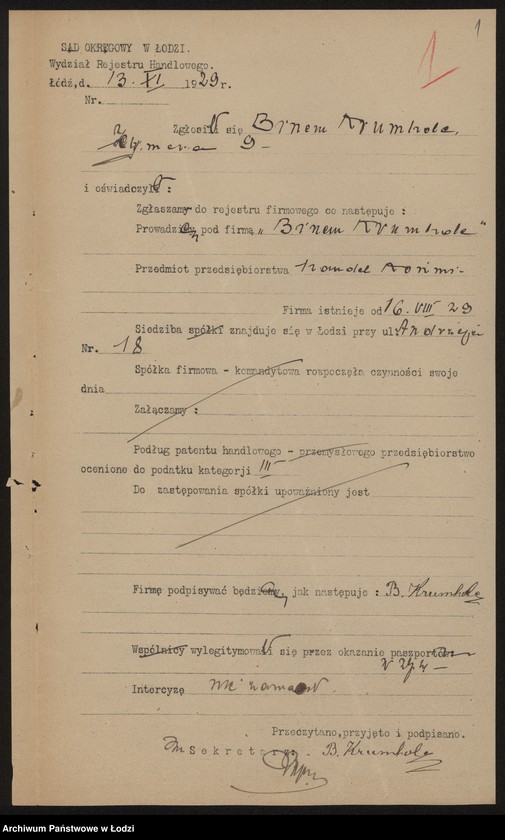 1
1
SĄD OKRĘGOWY W ŁODZI.
Wydział Rejestru Handlowego.
Łódź, d. 13. XI 1929 r.
Nr.
Zgłosił się
i oświadczył :
Zgłaszamy do rejestru firmowego co następuje :
Prowadzę pod firmą „
Przedmiot przedsiębiorstwa handel końmi
Firma istnieje od 16. VIII 29
Siedziba spółki znajduje się w Łodzi przy ul. Andrzeja
Nr. 18
Spółka firmowa - komandytowa rozpoczęła czynności swoje
dnia
Załączamy :
Podług patentu handlowego - przemysłowego przedsiębiorstwo
ocenione do podatku kategorji III
Do zastępowania spółki upoważniony jest
Firmę podpisywać będę, jak następuje : B. Krumholc
Wspólnicy wylegitymował się przez okazanie paszportu
Intercyzę nie zawarł.
Przeczytano, przyjęto i podpisano.
Sekretarz. B. Krumholc
Archiwum Państwowe w Łodzi